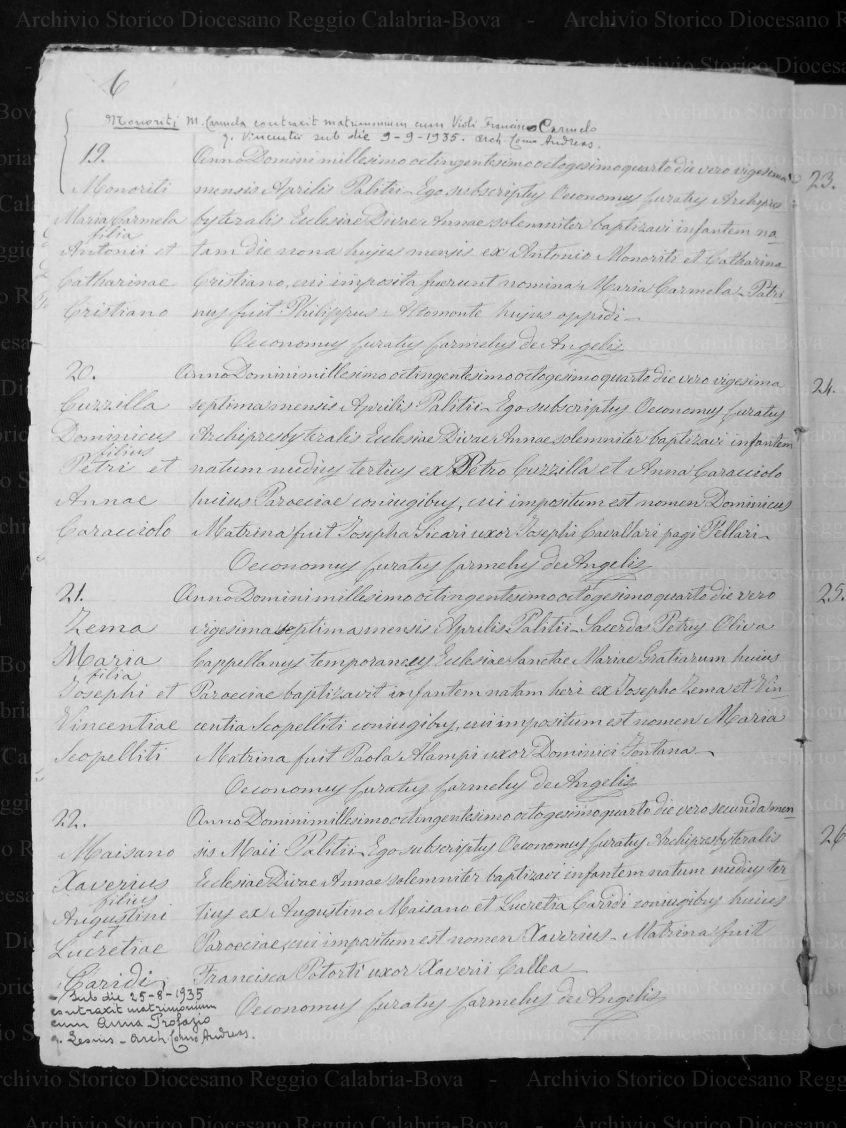 6
Monoriti M. Carmela contraxit matrimonium cum Violi Francisco Carmelo
q. Vincentii sub die 9-9-1935. Arch. Como Andreas.
19.
Monoriti
Maria Carmela
filia
Antonii et
Catharinae
Cristiano
Anno Domini millesimo octingentesimo octogesimo quarto die vero vigesima
mensis Aprilis Palitii - Ego subscriptus Oeconomus Curatus Archipres
byteralis Ecclesiae Divae Annae solemniter baptizavi infantem na-
tam die nona hujus mensis ex Antonio Monoriti et Catharina
Cristiano, cui imposita fuerunt nomina Maria Carmela - Patri-
nus fuit Philippus Altomonte hujus oppidi -
Oeconomus Curatus Carmelus de Angelis
20.
Cuzzilla
Dominicus
filius
Petri et
Annae
Caracciolo
Anno Domini millesimo octingentesimo octogesimo quarto die vero vigesima
septima mensis Aprilis Palitii - Ego subscriptus Oeconomus Curatus
Archipresbyteralis Ecclesiae Divae Annae solemniter baptizavi infantem
natum nudius tertius ex Petro Cuzzilla et Anna Caracciolo
huius Paroeciae coniugibus, cui impositum est nomen Dominicus
Matrina fuit Josepha Sicari uxor Josephi Cavallari pagi Pellari -
Oeconomus Curatus Carmelus de Angelis
21.
Zema
Maria
filia
Josephi et
Vincentiae
Scopelliti
Anno Domini millesimo octingentesimo octogesimo quarto die vero
vigesima septima mensis Aprilis Palitii - Sacerdos Petrus Oliva
Cappellanus temporaneus Ecclesiae Sanctae Mariae Gratiarum huius
Paroeciae baptizavit infantem natam heri ex Josepho Zema et Vin-
centia Scopelliti coniugibus, cui impositum est nomen Maria
Matrina fuit Paola Alampi uxor Dominici Fontana -
Oeconomus Curatus Carmelus de Angelis
22.
Maisano
Xaverius
filius
Augustini
et
Lucretiae
Caridi
Anno Domini millesimo octingentesimo octogesimo quarto die vero secunda men-
sis Maii Palitii - Ego subscriptus Oeconomus Curatus Archipresbyteralis
Ecclesiae Divae Annae solemniter baptizavi infantem natum nudius ter
tius ex Augustino Maisano et Lucretia Caridi coniugibus huius
Paroeciae, cui impositum est nomen Xaverius - Matrina fuit
Francisca Potorti uxor Xaverii Callea -
Oeconomus Curatus Carmelus de Angelis
- Sub die 25-8-1935
contraxit matrimonium
cum Anna Profazio
q. - Arch. Como Andreas.
23.
24.
25.
26
Archivio Storico Diocesano Reggio Calabria-Bova